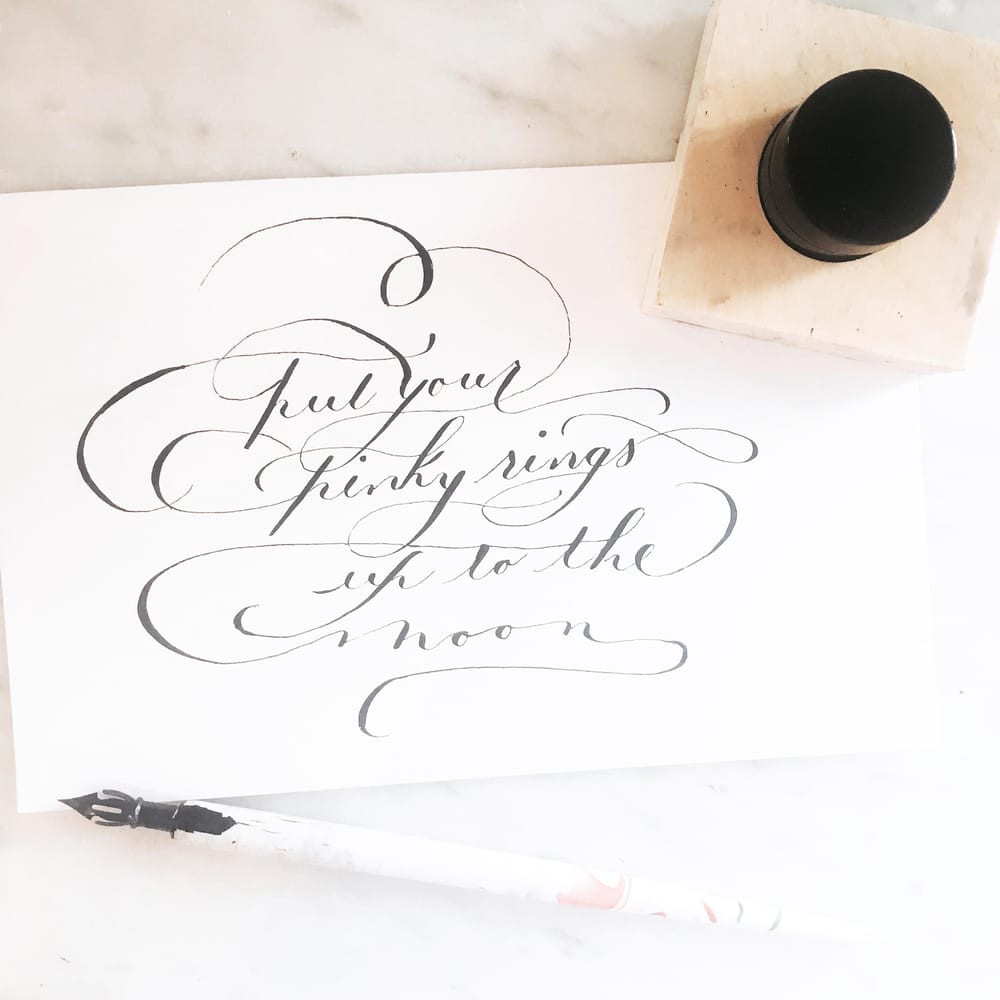 put your
pinky rings
up to the
moon